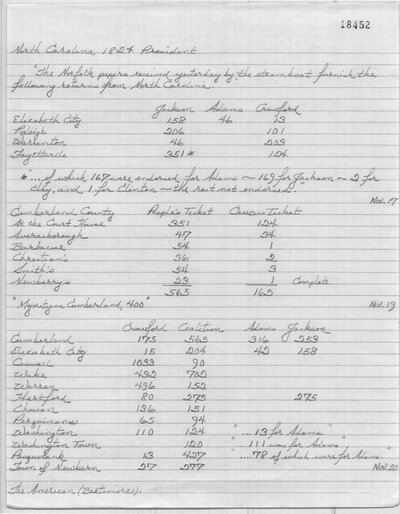 18452
North Carolina 1824 President
"The Norfolk papers received yesterday by the steamboat furnish the
following returns from North Carolina:"
Jackson Adams Crawford
Elizabeth City 158 46 13
Raleigh 206 101
Warrenton 46 203
Fayetteville 351* 124
*"... of which 167 were endorsed for Adams — 169 for Jackson — 2 for
Clay, and 1 for Clinton — the rest not endorsed."
Nov. 17
Cumberland County People's Ticket Caucus Ticket
At the Court House 351 124
Averasborough 47 34
Barbacue 54 1
Christian's 36 2
Smith's 54 3
Newberry's 23 1 Complete
565 165
"Majority in Cumberland, 400" Nov. 19
Crawford Coalition Adams Jackson
Cumberland 175 565 316 253
Elizabeth City 15 204 42 158
Caswell 1033 90
Wake 432 702
Warren 496 152
Hertford 80 275 275
Chowan 136 151
Perquimans 65 94
Washington 110 124 "....13 for Adams"
Washington Town 120 "111 was for Adams"
Pasquotank 13 427 "....78 of which were for Adams."
Town of Newbern 27 277 Nov. 20
The American (Baltimore).